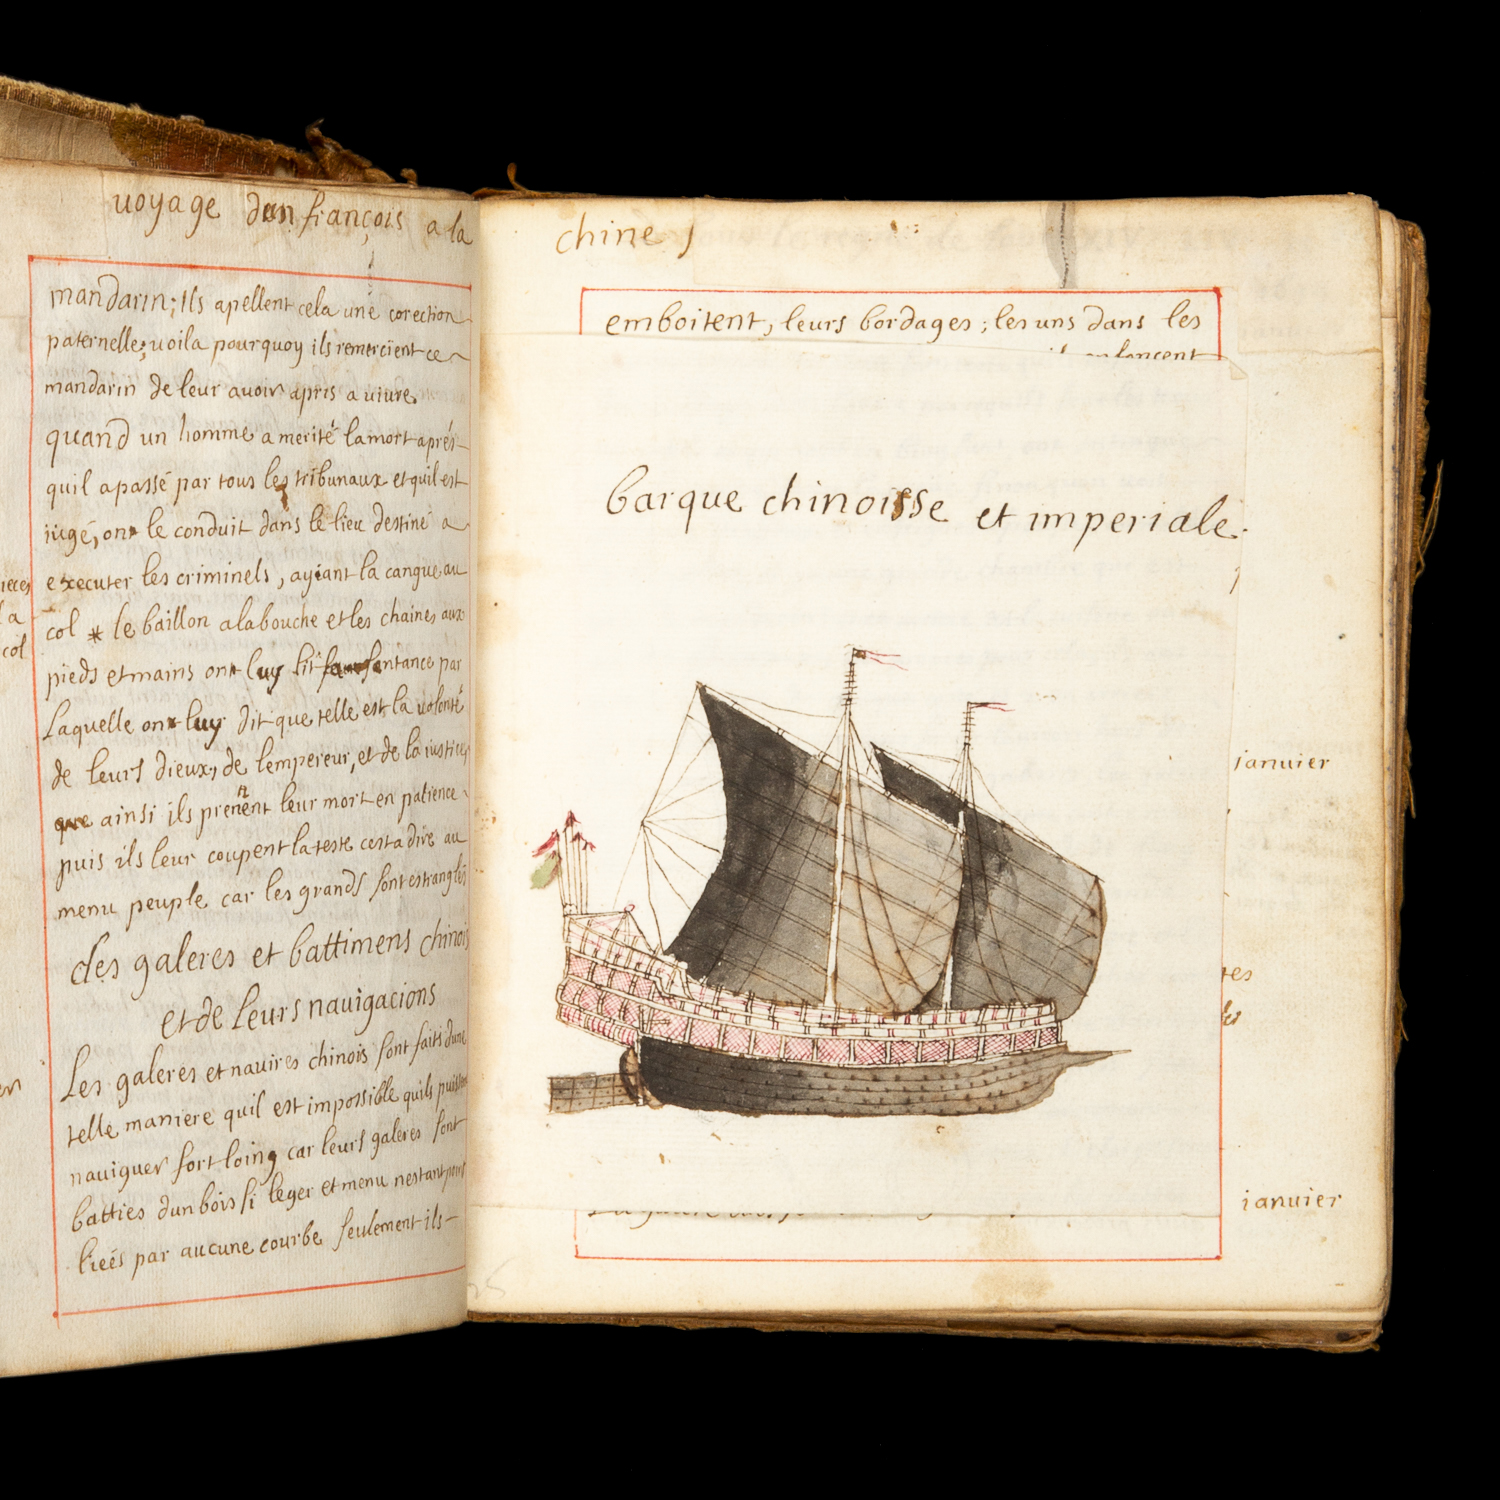 uoyage dun françois a la
mandarin; Ils apellent cela une corection
paternelle; uoila pourquoy ils remercient ce
mandarin de leur auoir apris a uiure.
quand un homme a merité la mort aprés
quil a passé par tous les tribunaux et quil est
iugé, on le conduit dans le lieu destiné a
executer les criminels, ayiant la cangue au
col * le baillon a la bouche et les chaines aux
pieds et mains on luy lit sentance par
Laquelle on luy dit que telle est la uolonté
de leurs dieux, de lempereur, et de la iustice
que ainsi ils prenent leur mort en patience
puis ils leur coupent la teste cest a dire au
menu peuple car les grands sont estranglés
des galeres et battimens chinois
et de leurs nauigacions
Les galeres et nauires chinois sont faits dune
telle maniere quil est impossible quils puissent
nauiguer fort loing car leurs galeres sont
batties dun bois si leger et menu nestant point
lieés par aucune courbe seulement ils
la
col
chine,
emboitent, leurs bordages; les uns dans les
enfoncent
barque chinoisse et imperiale.
ianuier
ianuier